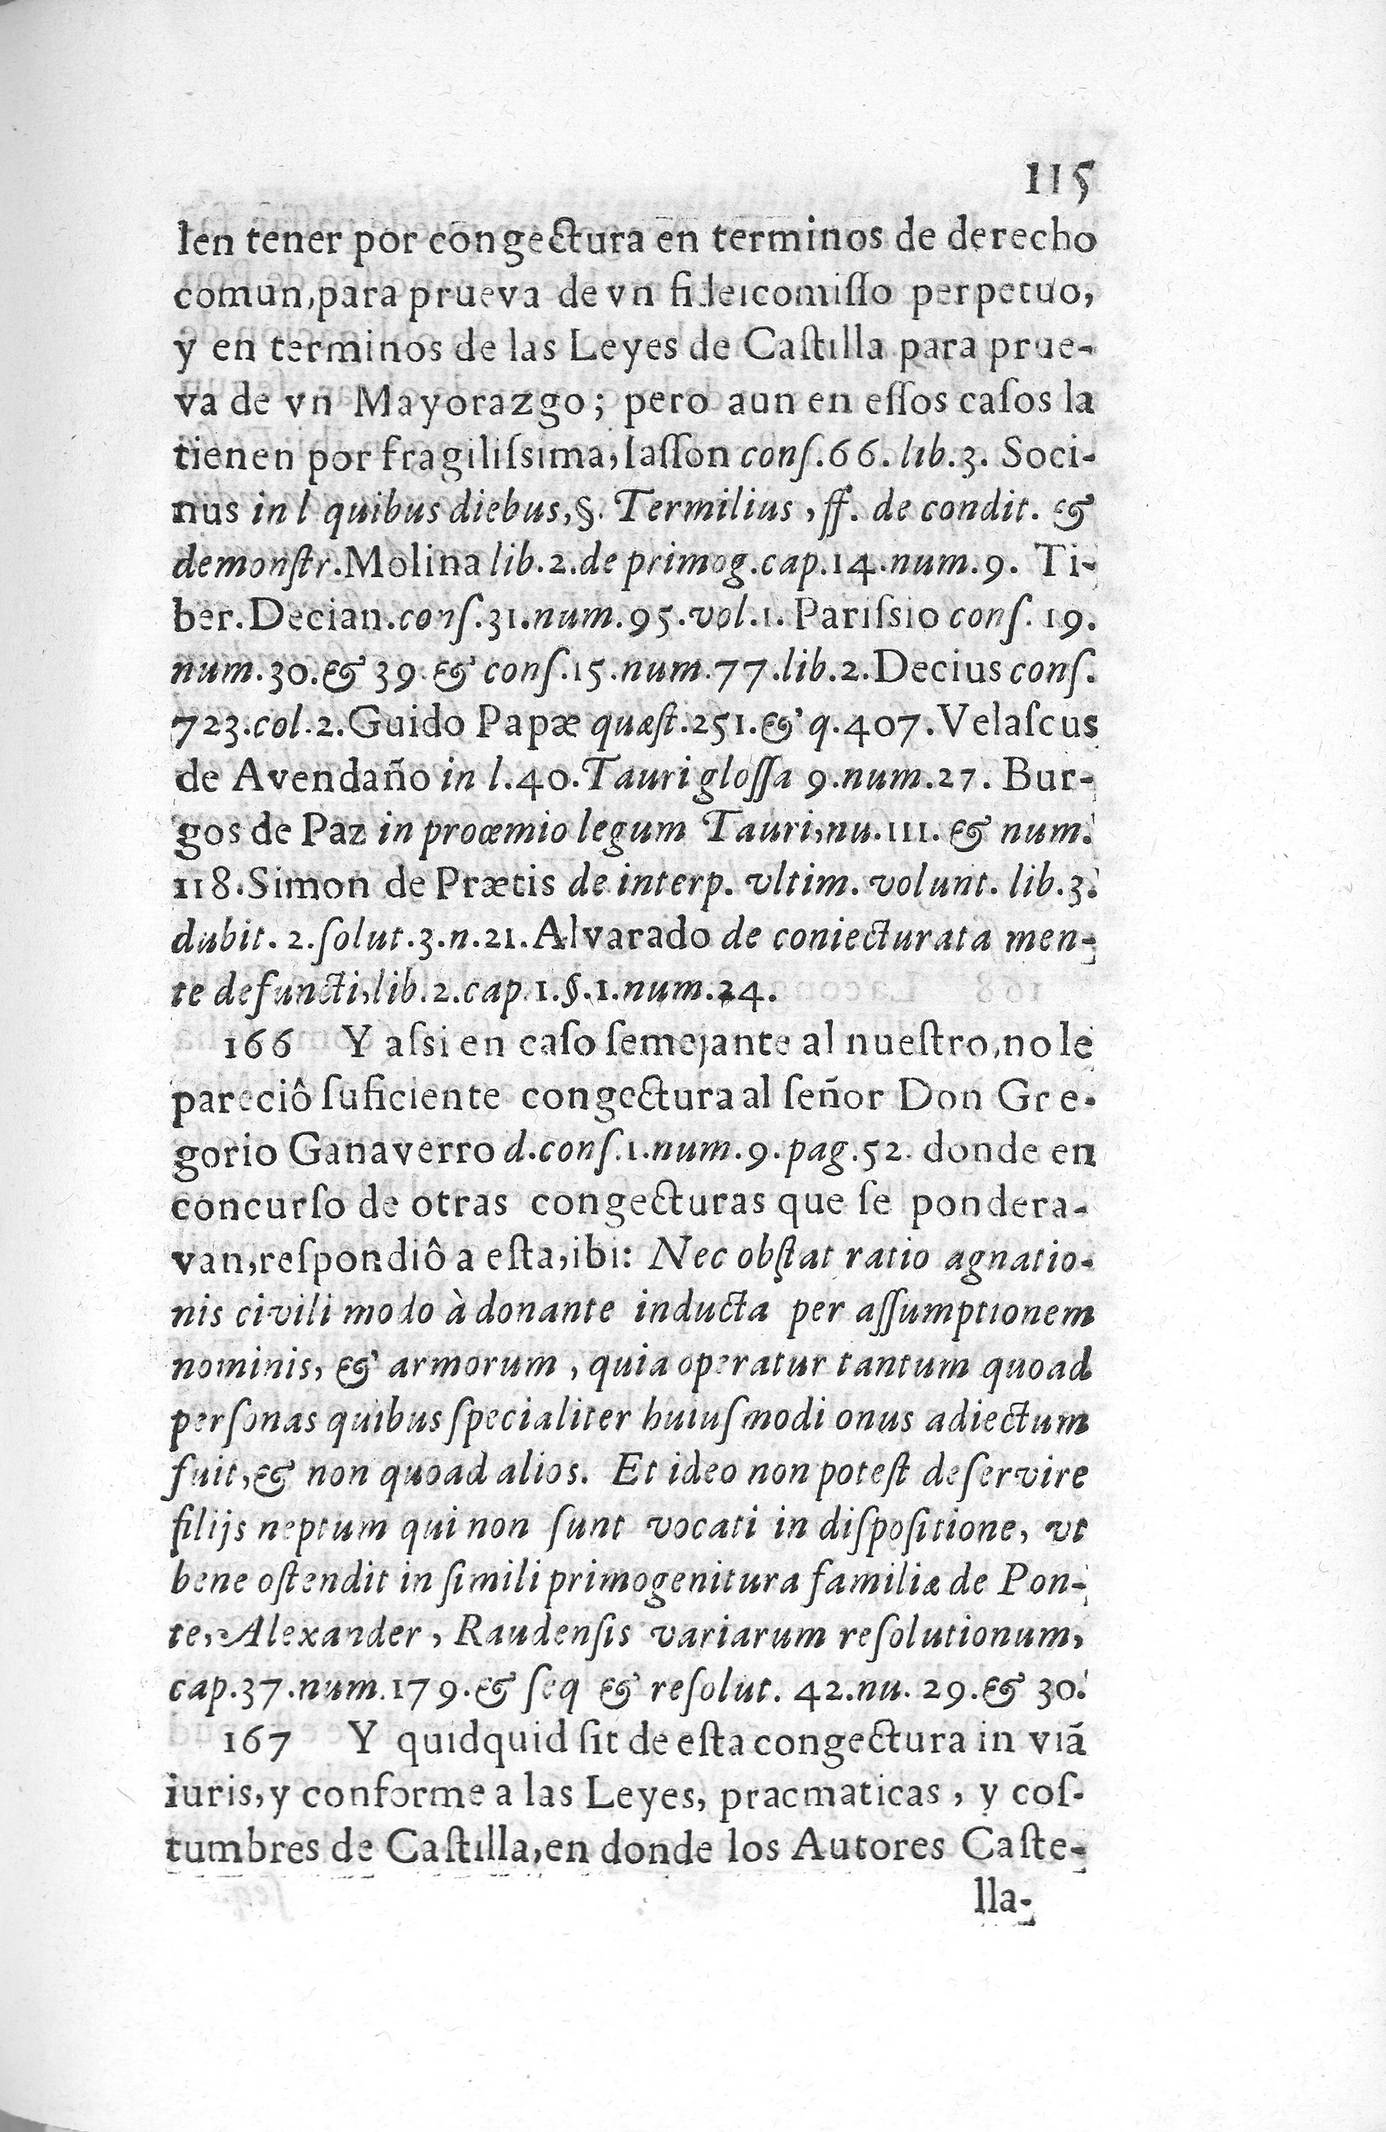 115
len tener por congectura en terminos de derecho
comun, para prueva de vn fideicomisso perpetuo,
y en terminos de las Leyes de Castilla para prue-
va de vn Mayorazgo; pero aun en essos casos la
tienen por fragilissima, Iasson cons.66. lib.3. Soci-
nus in l quibus diebus, §. Termilius, ff. de condit. &
demonstr. Molina lib.2. de primog. cap.14. num.9. Ti-
ber. Decian. cons.31. num.95. vol.1. Parissio cons. 19.
num.30. & 39. & cons.15. num.77. lib.2. Decius cons.
723. col.2. Guido Papæ quæst.251. & q.407. Velascus
de Avendaño in l.40. Tauri glossa 9. num.27. Bur-
gos de Paz in proœmio legum Tauri, nu.111. & num.
118. Simon de Prætis de interp. vltim. volunt. lib.3.
dubit. 2. solut.3. n.21. Alvarado de coniecturata men-
te defuncti, lib.2. cap.1. §.1. num.24.
166 Y assi en caso semejante al nuestro, no le
pareciô suficiente congectura al señor Don Gre-
gorio Ganaverro d. cons.1. num.9. pag.52. donde en
concurso de otras congecturas que se pondera-
van, respondiô a esta, ibi: Nec obstat ratio agnatio-
nis civili modo à donante inducta per assumptionem
nominis, & armorum, quia operatur tantum quoad
personas quibus specialiter huiusmodi onus adiectum
fuit, & non quoad alios. Et ideo non potest deservire
filijs neptum qui non sunt vocati in dispositione, vt
bene ostendit in simili primogenitura familiæ de Pon-
te, Alexander, Raudensis variarum resolutionum,
cap.37. num.179. & seq & resolut. 42. nu. 29. & 30.
167 Y quidquid sit de esta congectura in viã
iuris, y conforme a las Leyes, pracmaticas, y cos-
tumbres de Castilla, en donde los Autores Caste-
lla-